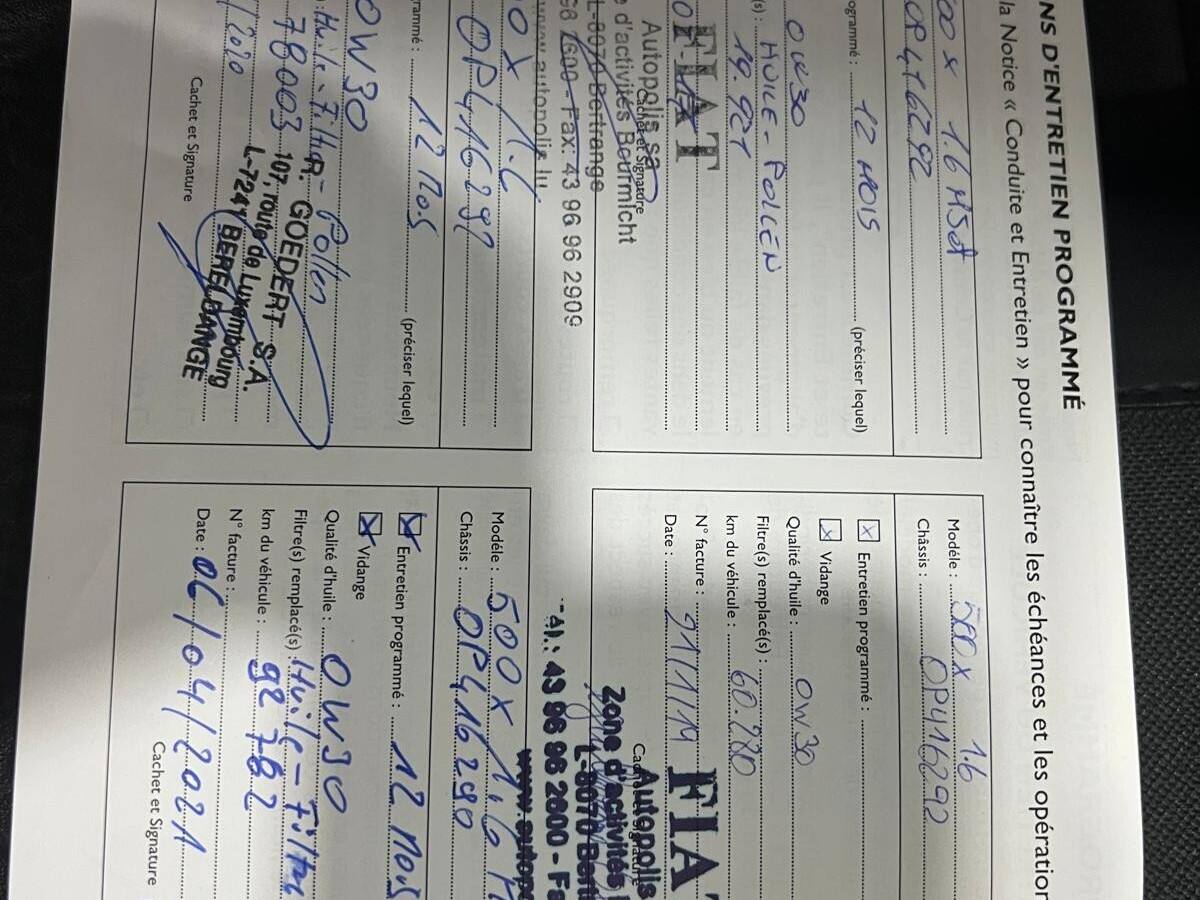 NS D'ENTRETIEN PROGRAMMÉ
la Notice « Conduite et Entretien » pour connaître les échéances et les opération
00 X 1.6
OP416292
ogrammé : 12 MOIS (préciser lequel)
0W30
(s) : HUILE - POLLEN
19.927
FIAT
Cachet et Signature
Autopolis sa
e d'activités Bourmicht
L-8070 Bertrange
98 2600 - Fax: 43 96 96 2909
www.autopolis.lu
Modéle : 500X 1.6
Châssis : OP416292
x Entretien programmé :
x Vidange
Qualité d'huile : 0W30
Filtre(s) remplacé(s) :
km du véhicule : 60.280
N° facture :
Date : 91/1/19
FIA
Autopolis
Zone d'activités
L-8070 Bert
43 96 96 2600 - Fa
www.autop
0X 1.6
OP416292
grammé : 12 Mois (préciser lequel)
0W30
Huile - Filtre - Pollen
78003
/2020
R. GOEDERT S.A.
107, route de Luxembourg
L-7241 BERELDANGE
Cachet et Signature
Modéle : 500X 1.6
Châssis : OP416290
x Entretien programmé : 12 Mois
x Vidange
Qualité d'huile : 0W30
Filtre(s) remplacé(s) : Huile - Filtre
km du véhicule : 92 782
N° facture :
Date : 06/04/2021
Cachet et Signature